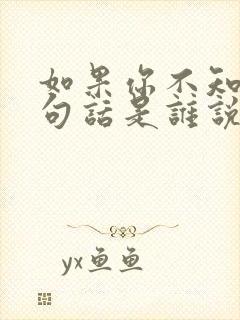 如果你不知
句話是誰説
yx鱼鱼